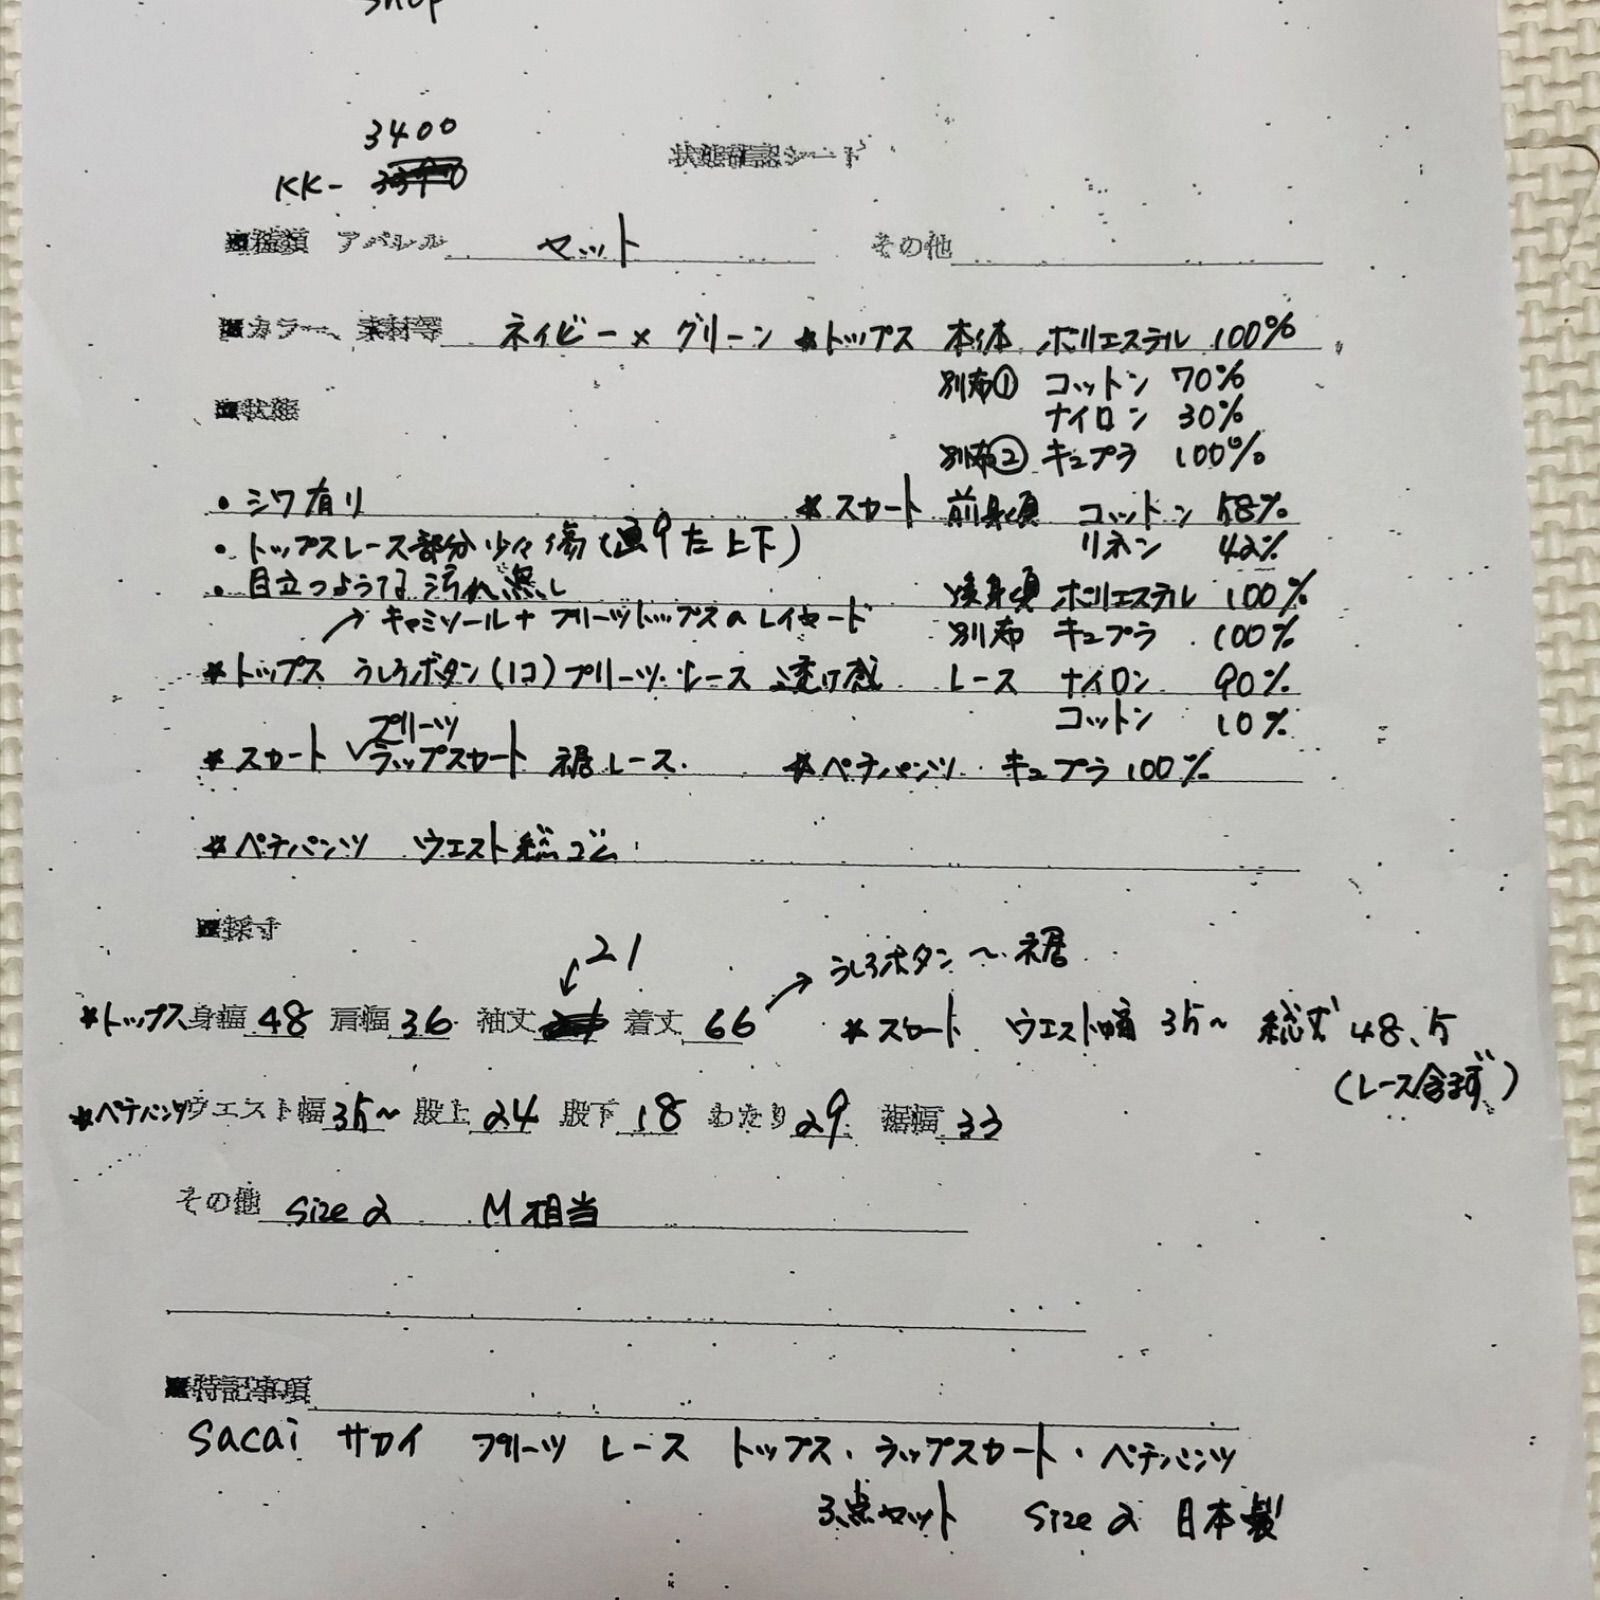 shop
3400
KK-
状態確認シート
■種類 アパレル セット その他
■カラー、素材等 ネイビー×グリーン *トップス 本体 ポリエステル 100%
別布① コットン 70%
■状態
ナイロン 30%
別布② キュプラ 100%
・シワ有り *スカート 前身頃 コットン 58%
・トップスレース部分少々傷( 左上下) リネン 42%
・目立つような汚れ無し 後身頃 ポリエステル 100%
→キャミソール+プリーツトップスのレイヤード 別布 キュプラ 100%
*トップス うしろボタン(1コ)プリーツ・レース 透け感 レース ナイロン 90%
コットン 10%
プリーツ
*スカート √ラップスカート 裾レース. *ペチパンツ キュプラ100%
*ペチパンツ ウエスト総ゴム
■採寸
21 うしろボタン〜裾
*トップス身幅 48 肩幅 36 袖丈 着丈 66 *スカート ウエスト幅 35〜 総丈 48.5
(レース含まず)
*ペチパンツウエスト幅 35〜 股上 24 股下 18 わたり 29 裾幅 33
その他 size 2 M相当
■特記事項
sacai サカイ プリーツ レース トップス・ラップスカート・ペチパンツ
3点セット size 2 日本製